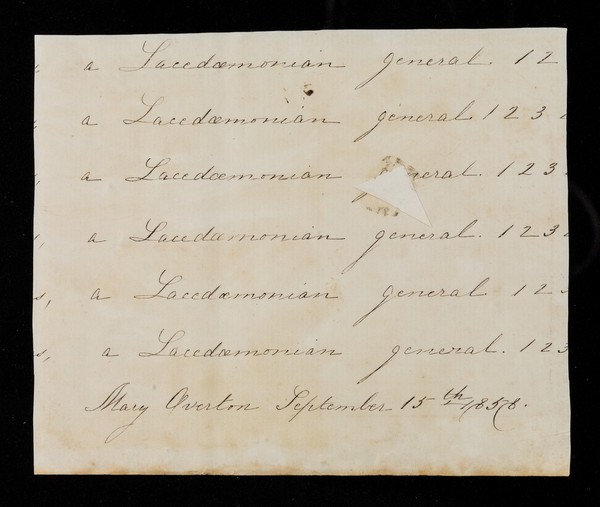 , a Lacedæmonian general. 1 2
, a Lacedæmonian general. 1 2 3
, a Lacedæmonian general. 1 2 3
, a Lacedæmonian general. 1 2 3
s, a Lacedæmonian general. 1 2
s, a Lacedæmonian general. 1 2 3
Mary Overton September 15th 1858.